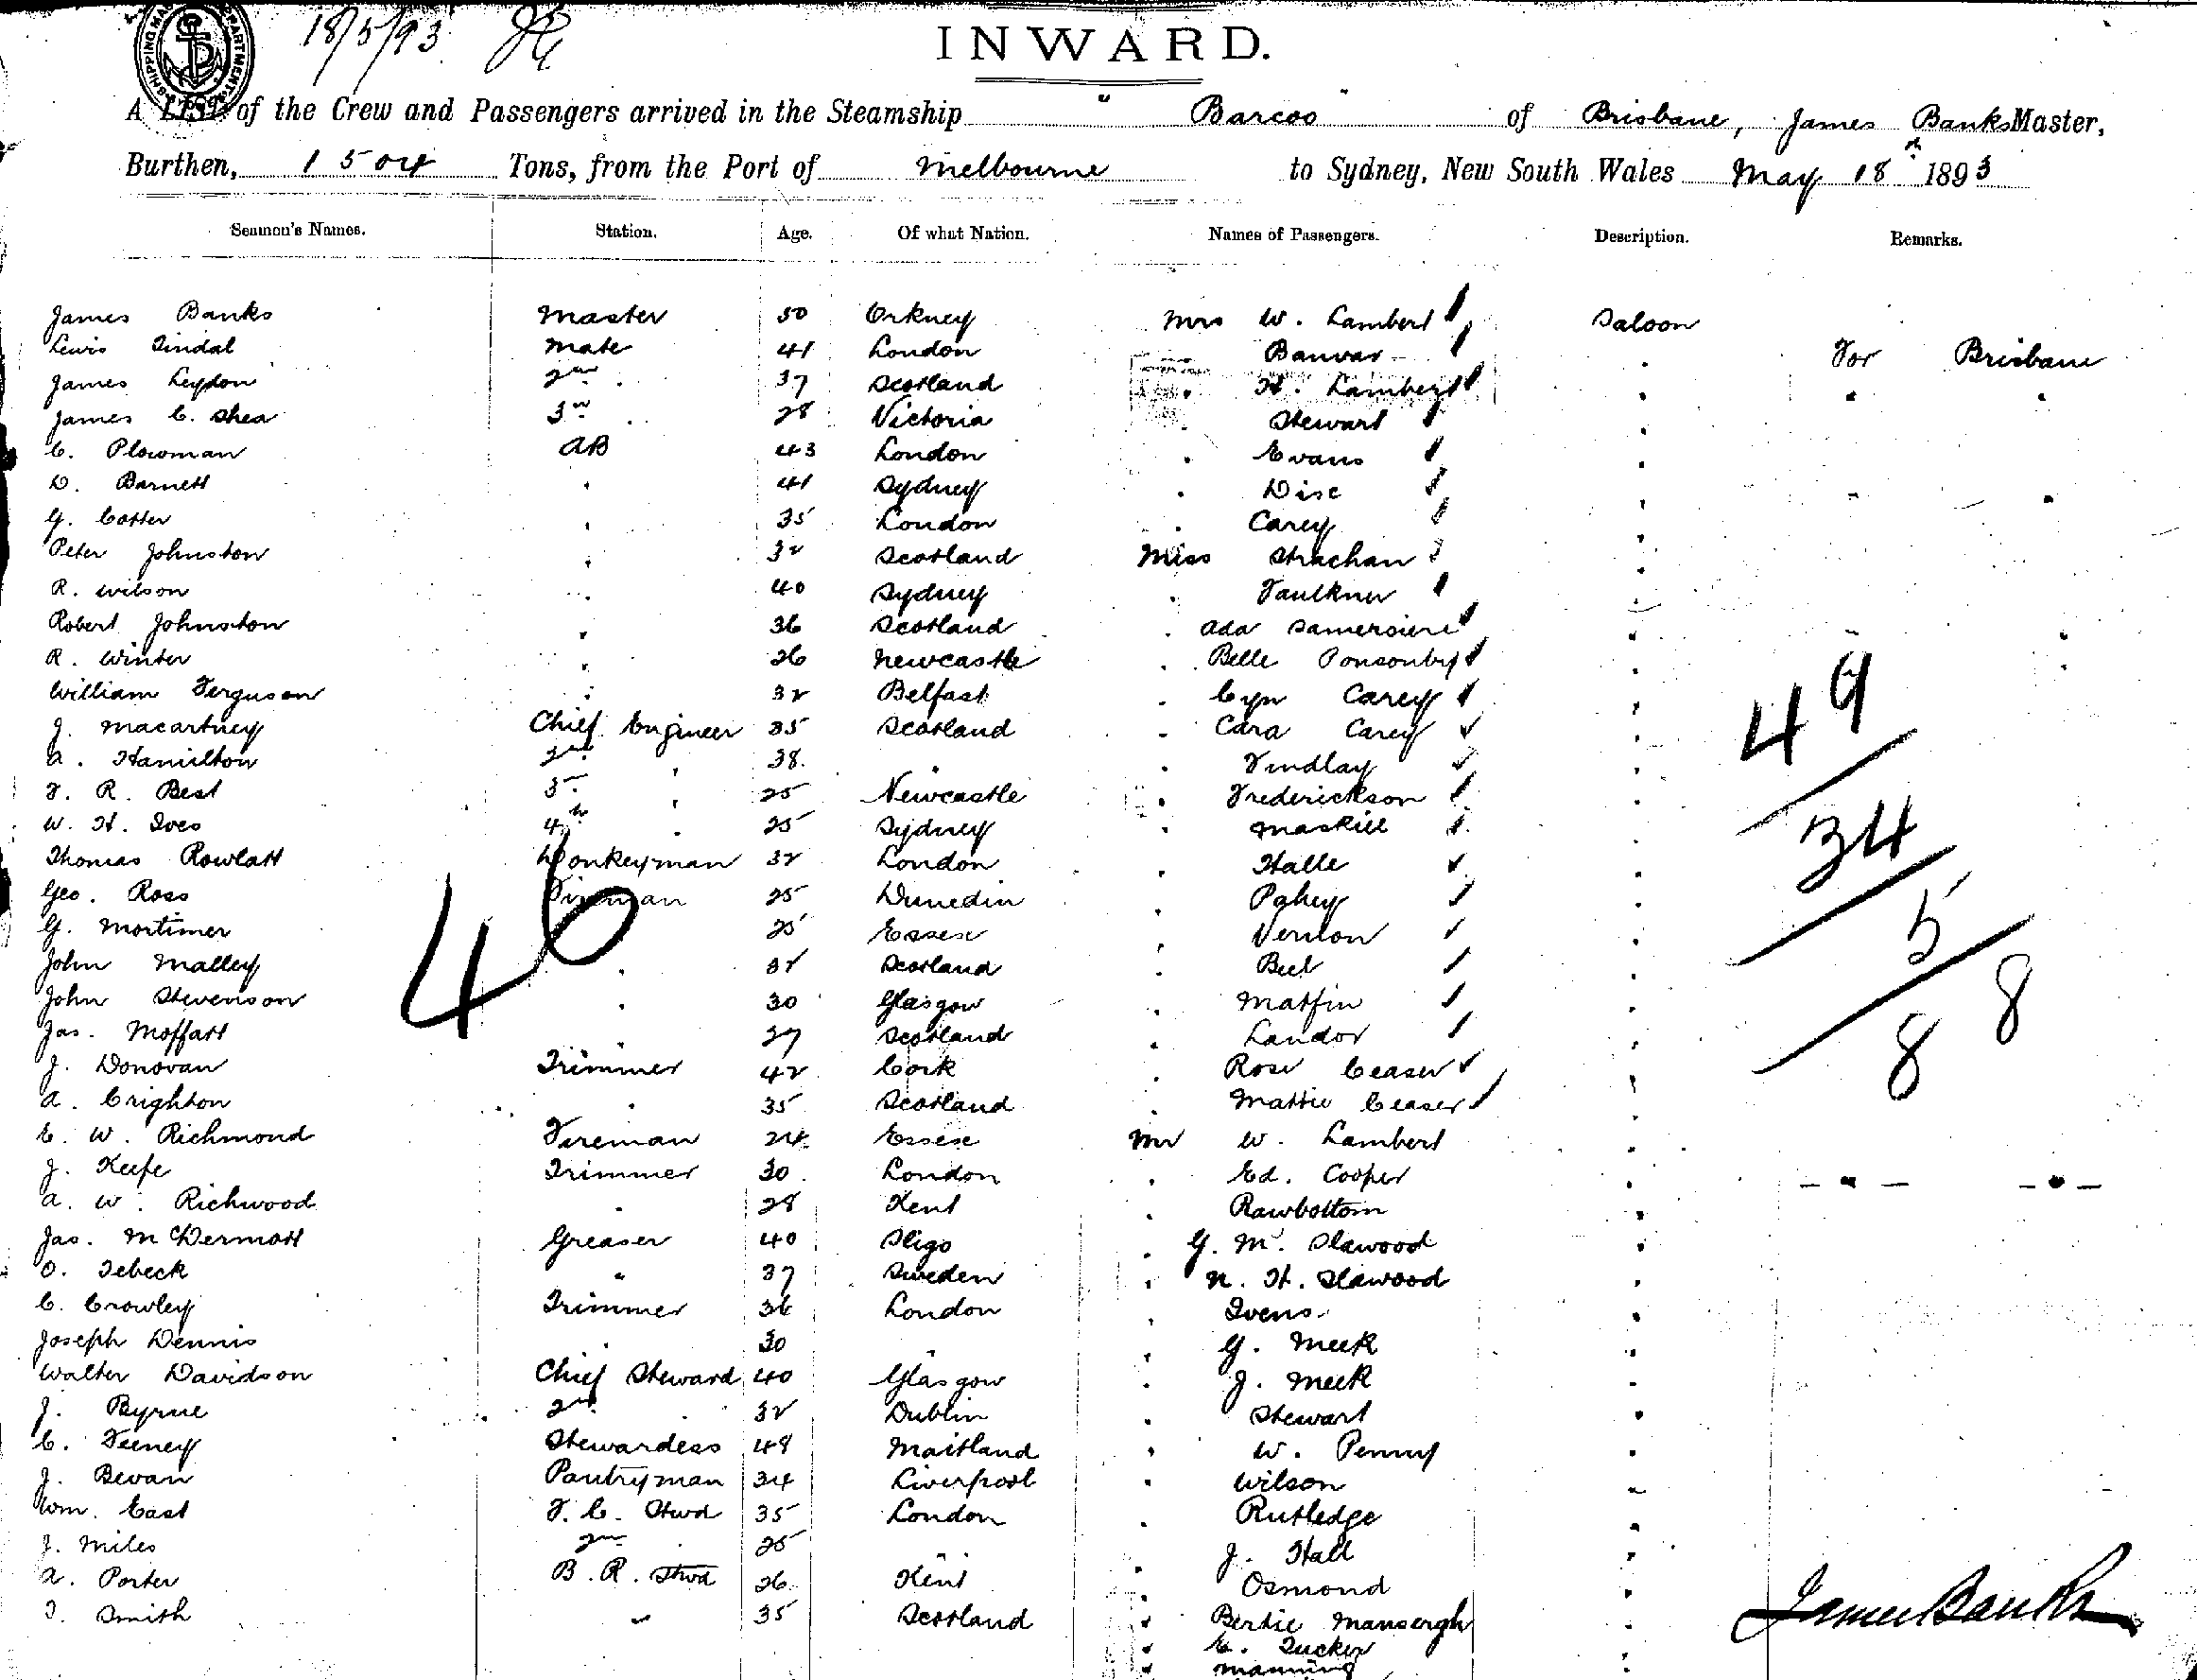 18/5/93
SHIPPING MA DEPARTMENT
INWARD.
A LIST of the Crew and Passengers arrived in the Steamship Barcoo of Brisbane, James Banks Master,
Burthen, 1504 Tons, from the Port of Melbourne to Sydney, New South Wales May 18th 1893
Seamen's Names. Station. Age. Of what Nation. Names of Passengers. Description. Remarks.
James Banks Master 50 Orkney Mrs W. Lambert Saloon
Lewis Mate 41 London " For Brisbane
James Leydon 2nd " 37 Scotland " H. Lambert " " "
James C. Shea 3rd " 28 Victoria " Stewart "
C. Plowman AB 43 London " Evans "
D. Barnett " 41 Sydney " "
G. Cotter " 35 London " Carey "
Peter Johnston " 32 Scotland Miss Strachan "
R. Wilson " 40 Sydney " Faulkner "
Robert Johnston " 36 Scotland " Ada "
R. Winter " 26 Newcastle " Belle Ponsonby "
William Ferguson " 32 Belfast " Carey "
J. Macartney Chief Engineer 35 Scotland " Cara Carey "
A. Hamilton 2nd " 38 " " Findlay "
F. R. Best 3rd " 25 Newcastle " Frederickson "
W. H. Ives 4th " 25 Sydney " Maskill "
Thomas Rowlatt Donkeyman 32 London " Halle "
Geo. Ross Fireman 25 Dunedin " "
G. Mortimer 25 Essex " Vernon "
John Malley " 32 Scotland " "
John Stevenson " 30 Glasgow " "
Jas. Moffatt " 27 Scotland " Landor "
J. Donovan Trimmer 42 Cork " Rose Ceaser "
A. Crighton " 35 Scotland " Mattie Ceaser "
E. W. Richmond Fireman 24 Essex Mr W. Lambert "
J. Keefe Trimmer 30 London " Ed. Cooper " - " - - " -
A. W. Richwood " 28 Kent " Rawbottom "
Jas. McDermott Greaser 40 Sligo " G. M. Slawood "
O. Tebeck " 37 Sweden " N. H. Slawood "
C. Crowley Trimmer 36 London " Ivens "
Joseph Dennis " 30 " " G. Meek "
Walter Davidson Chief Steward 40 Glasgow " J. Meek "
J. Byrne 2nd " 32 Dublin " Stewart "
C. Feeney Stewardess 48 Maitland " W. Penny "
J. Bevan Pantryman 34 Liverpool " Wilson "
Wm. East F. C. Stwd 35 London " Rutledge "
J. Miles 2nd " 25 " " J. Hall "
A. Porter B. R. Stwd 26 Kent " Osmond "
T. Smith " 35 Scotland " Bertie Mansergh "
" E. Tucker "
" Manning "
46
49
34
5
88
James Banks